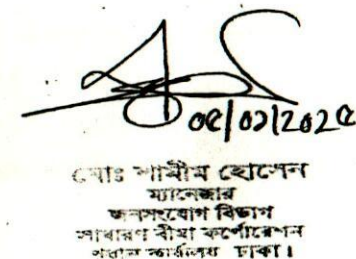 ০৫/০১/২০২৫
মোঃ শামীম হোসেন
ম্যানেজার
জনসংযোগ বিভাগ
সাধারণ বীমা কর্পোরেশন
প্রধান কার্যালয় ঢাকা।